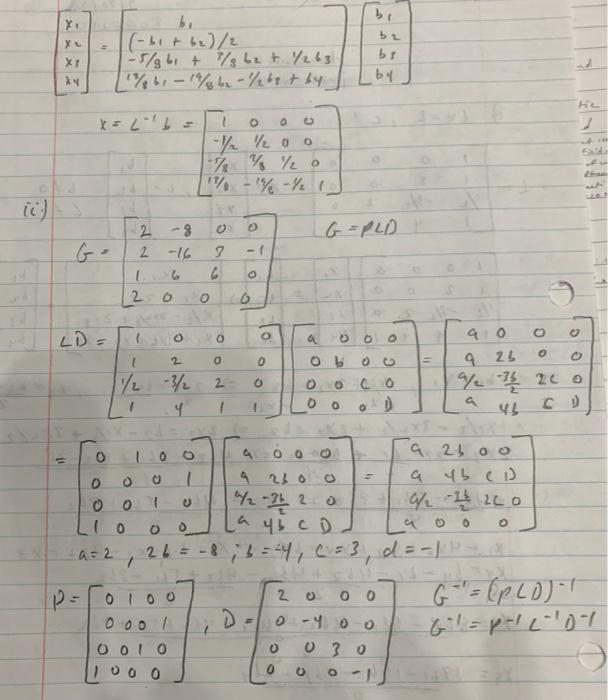 [x1 x2 x3 x4] = [b1
(-b1 + b2)/2
-5/8 b1 + 3/8 b2 + 1/2 b3
13/8 b1 - 19/8 b2 - 1/2 b3 + b4] [b1 b2 b3 b4]
x = L⁻¹b = [1 0 0 0
-1/2 1/2 0 0
-5/8 3/8 1/2 0
13/8 -19/8 -1/2 1]
ii)
G = [2 -8 0 0
2 -16 3 -1
1 6 6 0
2 0 0 0] G = PLD
LD = [1 0 0 0
1 2 0 0
1/2 -3/2 2 0
1 4 1 1] [a 0 0 0
0 b 0 0
0 0 c 0
0 0 0 D] = [a 0 0 0
a 2b 0 0
a/2 -3b/2 2c 0
a 4b c D]
= [0 1 0 0
0 0 0 1
0 0 1 0
1 0 0 0] [a 0 0 0
a 2b 0 0
a/2 -3b/2 2 0
a 4b c D] = [a 2b 0 0
a 4b c D
a/2 -3b/2 2c 0
a 0 0 0]
a=2, 2b = -8; b = -4, c = 3, d = -1
P = [0 1 0 0
0 0 0 1
0 0 1 0
1 0 0 0], D = [2 0 0 0
0 -4 0 0
0 0 3 0
0 0 0 -1] G⁻¹ = (PLD)⁻¹
G⁻¹ = P⁻¹L⁻¹D⁻¹